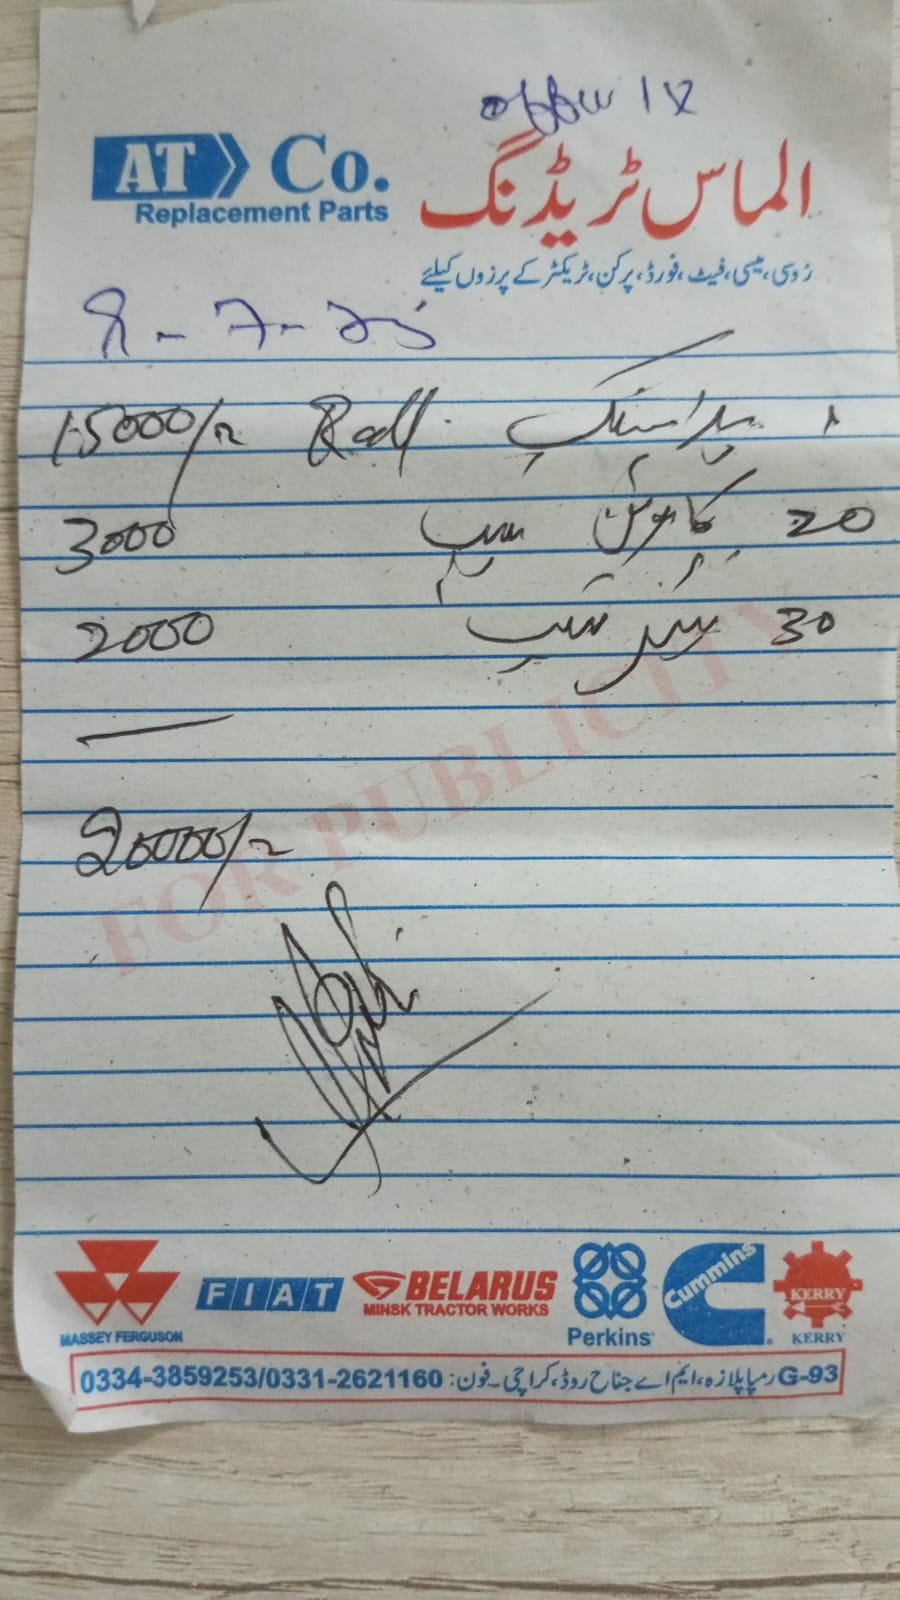 AT Co.
Replacement Parts
الماس ٹریڈنگ
رُوسی، میسی، فیٹ، فورڈ، پرکن، ٹریکٹر کے پرزوں کیلئے
8-7-25
15000/= Roll پلاسٹک 1
3000 20
2000 30
20000/=
FOR PUBLICITY
MASSEY FERGUSON
FIAT
BELARUS
MINSK TRACTOR WORKS
Perkins
Cummins
KERRY
KERRY
G-93 رمپا پلازہ، ایم اے جناح روڈ، کراچی۔ فون: 0334-3859253/0331-2621160